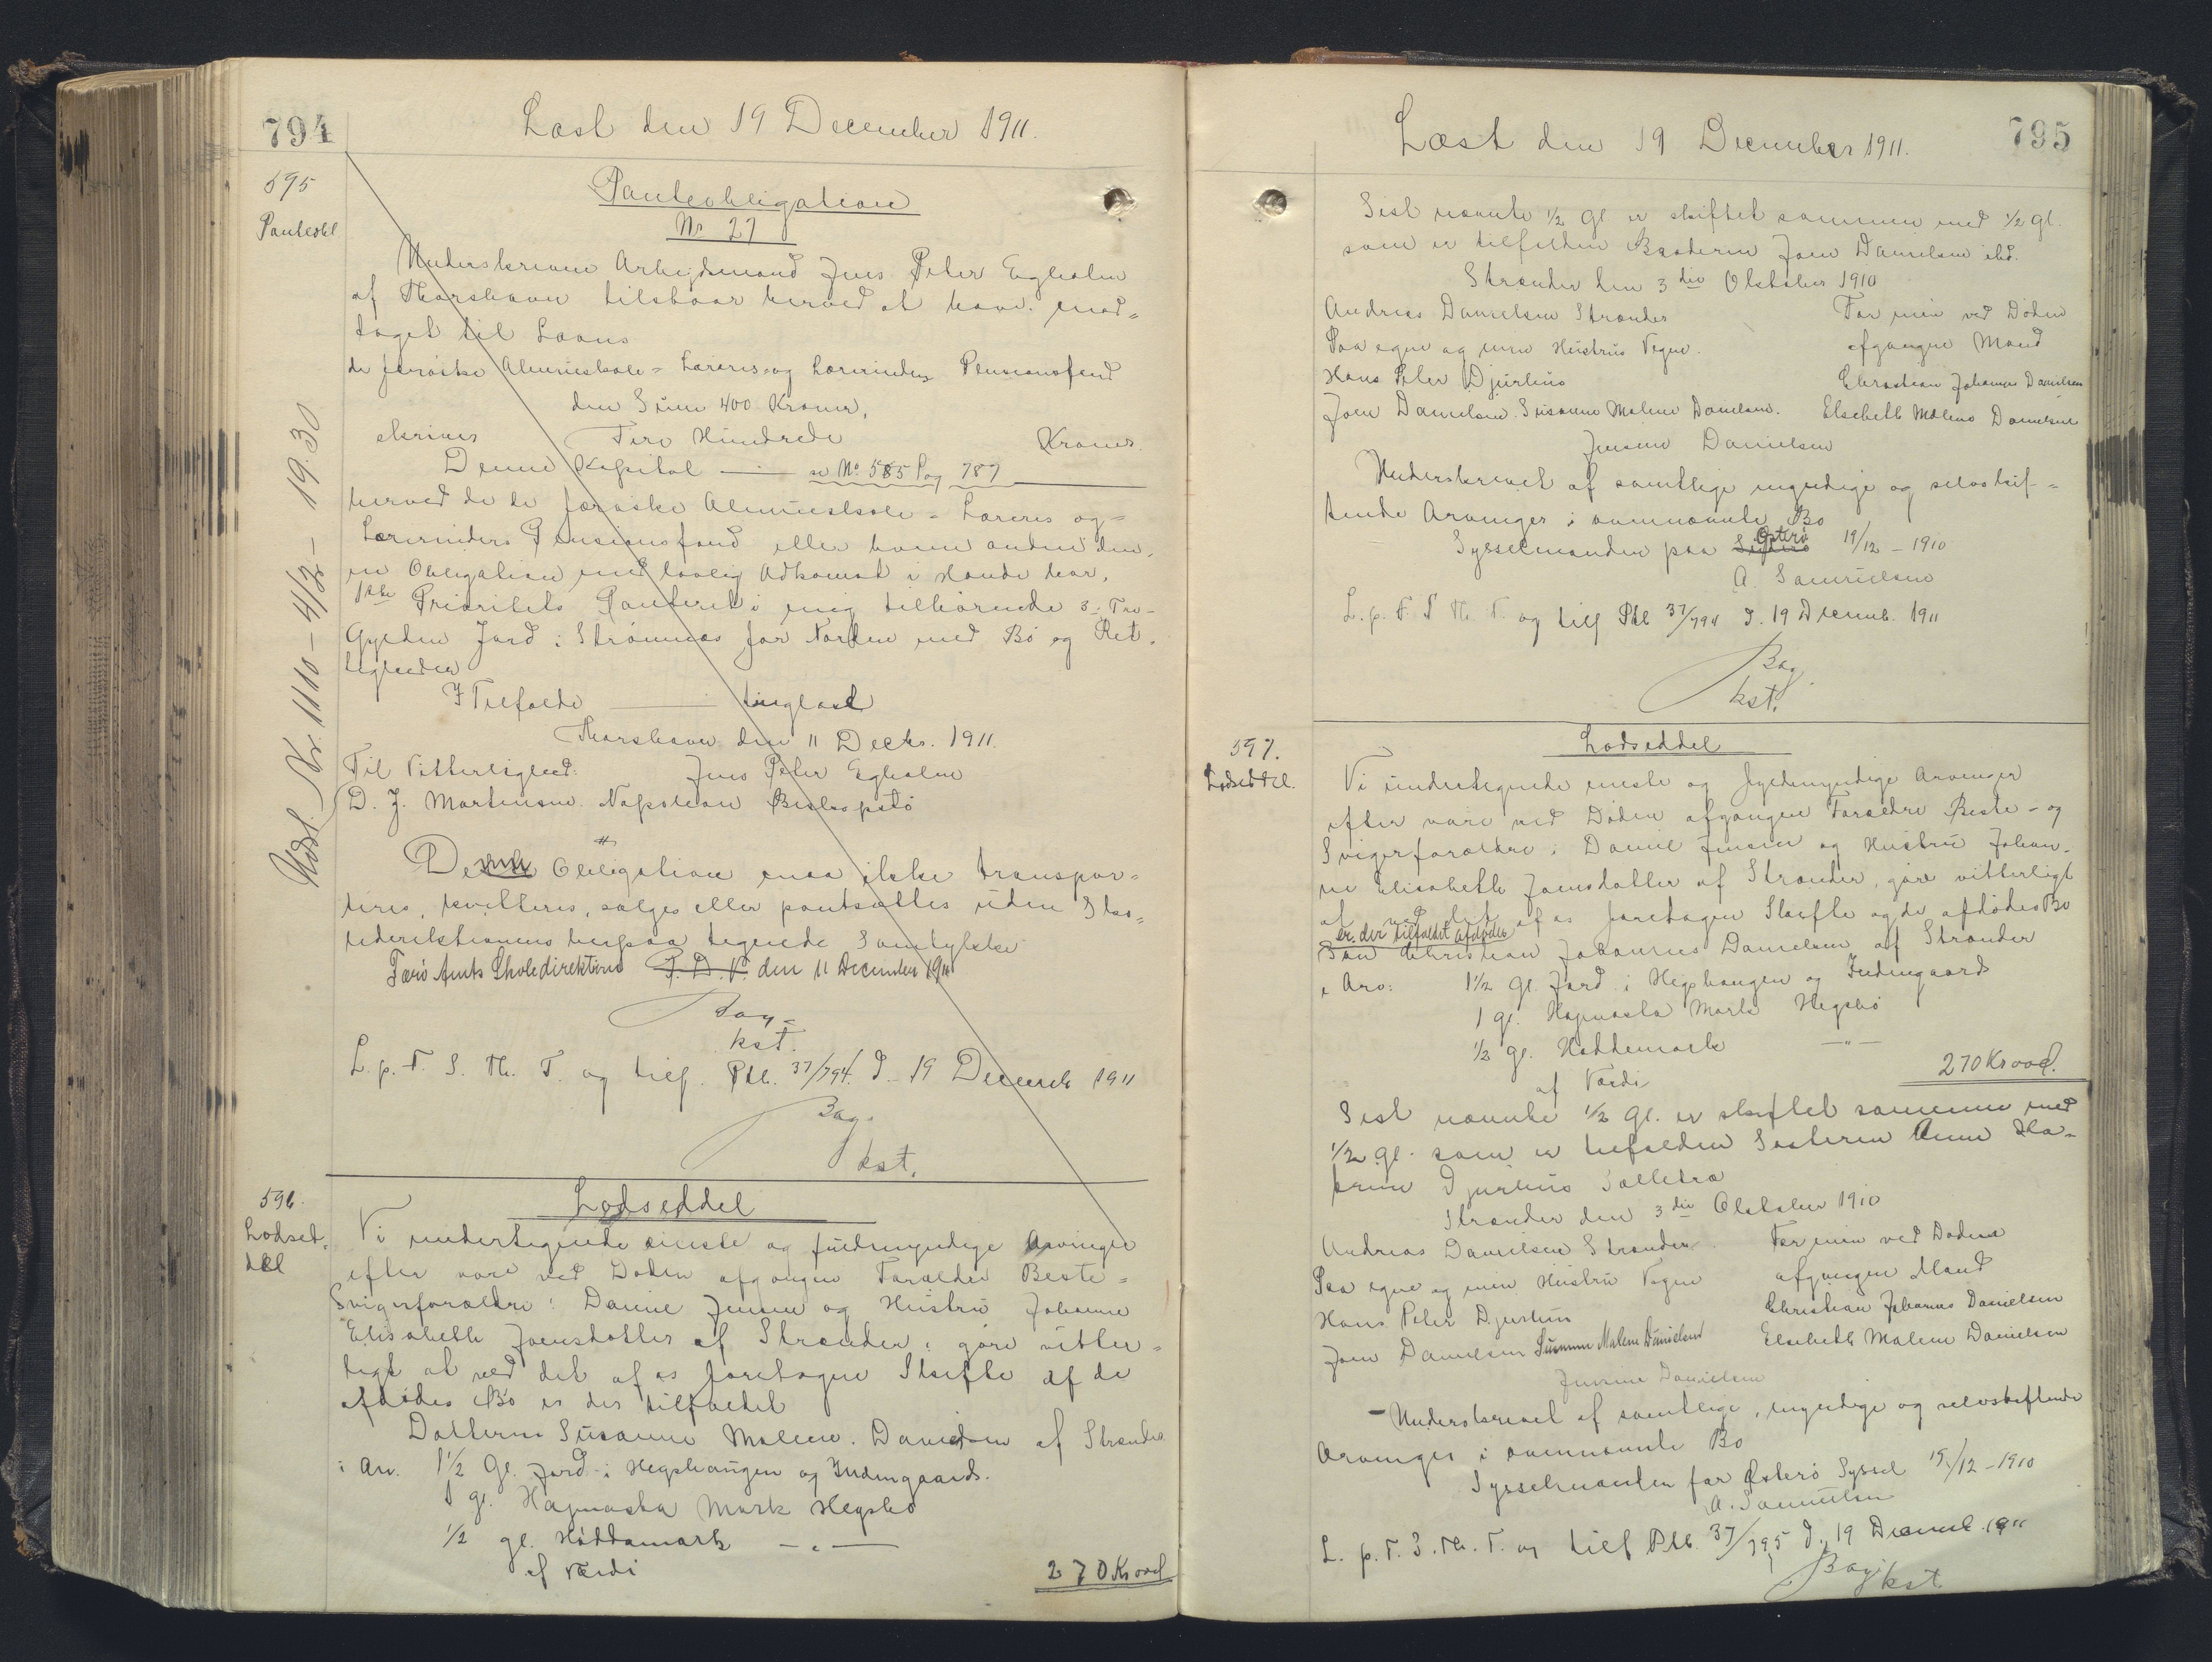 794
Læst den 19 December 1911.
595
Panteobl
Panteobligation
No 27
Underskrevne Arbejdsmand Jens Peter Egholm
af Thorshavn tilstaar herved at have mod=
taget til Laans
de færøske Almueskole= Læreres og Lærerinders Pensionsfond
den Sum 400 Kroner,
skriver Fire Hundrede Kroner.
Denne Kapital — se No 585 Pag 787 —
herved de de færøske Almueskole= Læreres og=
Lærerinders Pensionsfond eller hvem anden den=
ne Obligation med lovlig Adkomst i Hænde har,
1ste Prioritets Panteret i mig tilhørende 3: Tre-
Gylden Jord i Strømnæs for Norden med Bø og Ret=
ligheder
I Tilfælde — tinglæst
Thorshavn den 11 Decbr. 1911.
Til Vitterlighed: Jens Peter Egholm
D. J. Mortensen. Napoleon Biskopstø
Denne Obligation maa ikke transpor=
teres, kvitteres, sælges eller pantsættes uden Sko=
ledirektionens herpaa tegnede Samtykke
Færø Amts Skoledirektion F. D. V. den 11 December 1911
Bay=
kst.
L. p. F. S. Th. T. og tilf. Ptb. 37/794. d. 19 Decemb 1911
Bay.
kst.
Udsl. Nr. 1110 – 4/2 – 19.30
596.
Lodsed=
del
Lodseddel
Vi undertegnede eneste og fuldmyndige Arvinger
efter vore ved Døden afgangne Forældre Beste=
Svigerforældre: Daniel Jensen og Hustru Johanne
Elisabeth Joensdatter af Strænder, gøre vitter=
ligt at ved det af os foretagne Skifte af de
afdødes Bo er der tilfaldet
Datteren Susanne Malene. Danielsen af Strænder
i Arv. 1½ Gl. Jord i Hegshaugen og Indengaards.
1 gl. Hajnaska Mark Hegsbø
½ gl. Høddamark — " —
af Værdi 270 Kr 00 Ø
Læst den 19 December 1911.
795
Sist nævnte ½ gl er skiftet sammen med ½ gl.
som er tilfalden Broderen Joen Danielsen ibd.
Strænder den 3die Oktober 1910
Andreas Danielsen Strænder For min ved Døden
Paa egne og min Hustrus Vegne. afgangne Mand
Hans Peter Djurhuus Christian Johannes Danielsen
Joen Danielsen. Susanne Malene Danielsen. Elsebeth Malene Danielsen
Jensine Danielsen
Underskrevet af samtlige myndige og selvskif=
tende Arvinger i ovennævnte Bo
Sysselmanden paa Østerø 19/12 – 1910
A. Samuelsen
L. p. F. S Th. T. og tilf Ptb 37/794 d. 19 Decemb. 1911
Bay
kst.
597.
Lodseddel.
Lodseddel
Vi undertegnede eneste og fuldmyndige Arvinger
efter vore ved Døden afgangne Forældre Beste= og
Svigerforældre: Daniel Jensen og Hustru Johan=
ne Elisabeth Joensdatter af Strænder, gøre vitterligt
at ved det af os foretagne Skifte og de afdødes Bo
er der tilfaldet afdødes
Søn Christian Johannes Danielsen af Strænder
i Arv: 1½ Gl. Jord i Hegshaugen og Indengaards
1 gl. Hajnaska Mark Hegsbø
½ gl. Høddemark — " —
af Værdi 270 Kr 00 Ø.
Sist nævnte ½ gl. er skiftet sammen med
½ gl. som er tilfalden Søsteren Anne Ka=
trine Djurhuus Selletræ
Strænder den 3die Oktober 1910
Andreas Danielsen Strænder For min ved Døden
Paa egne og min Hustrus Vegne afgangne Mand
Hans Peter Djurhuus Christian Johannes Danielsen
Joen Danielsen Susanne Malene Danielsen Elsebeth Malene Danielsen
Jensine Danielsen
Underskrevet af samtlige, myndige og selvskiftende
Arvinger i ovennævnte Bo
Sysselmanden for Østerø Syssel 19/12 – 1910
A. Samuelsen
L. p. F. S. Th. T. og tilf Ptb. 37/795 d. 19 Decemb. 1911
Bay
kst